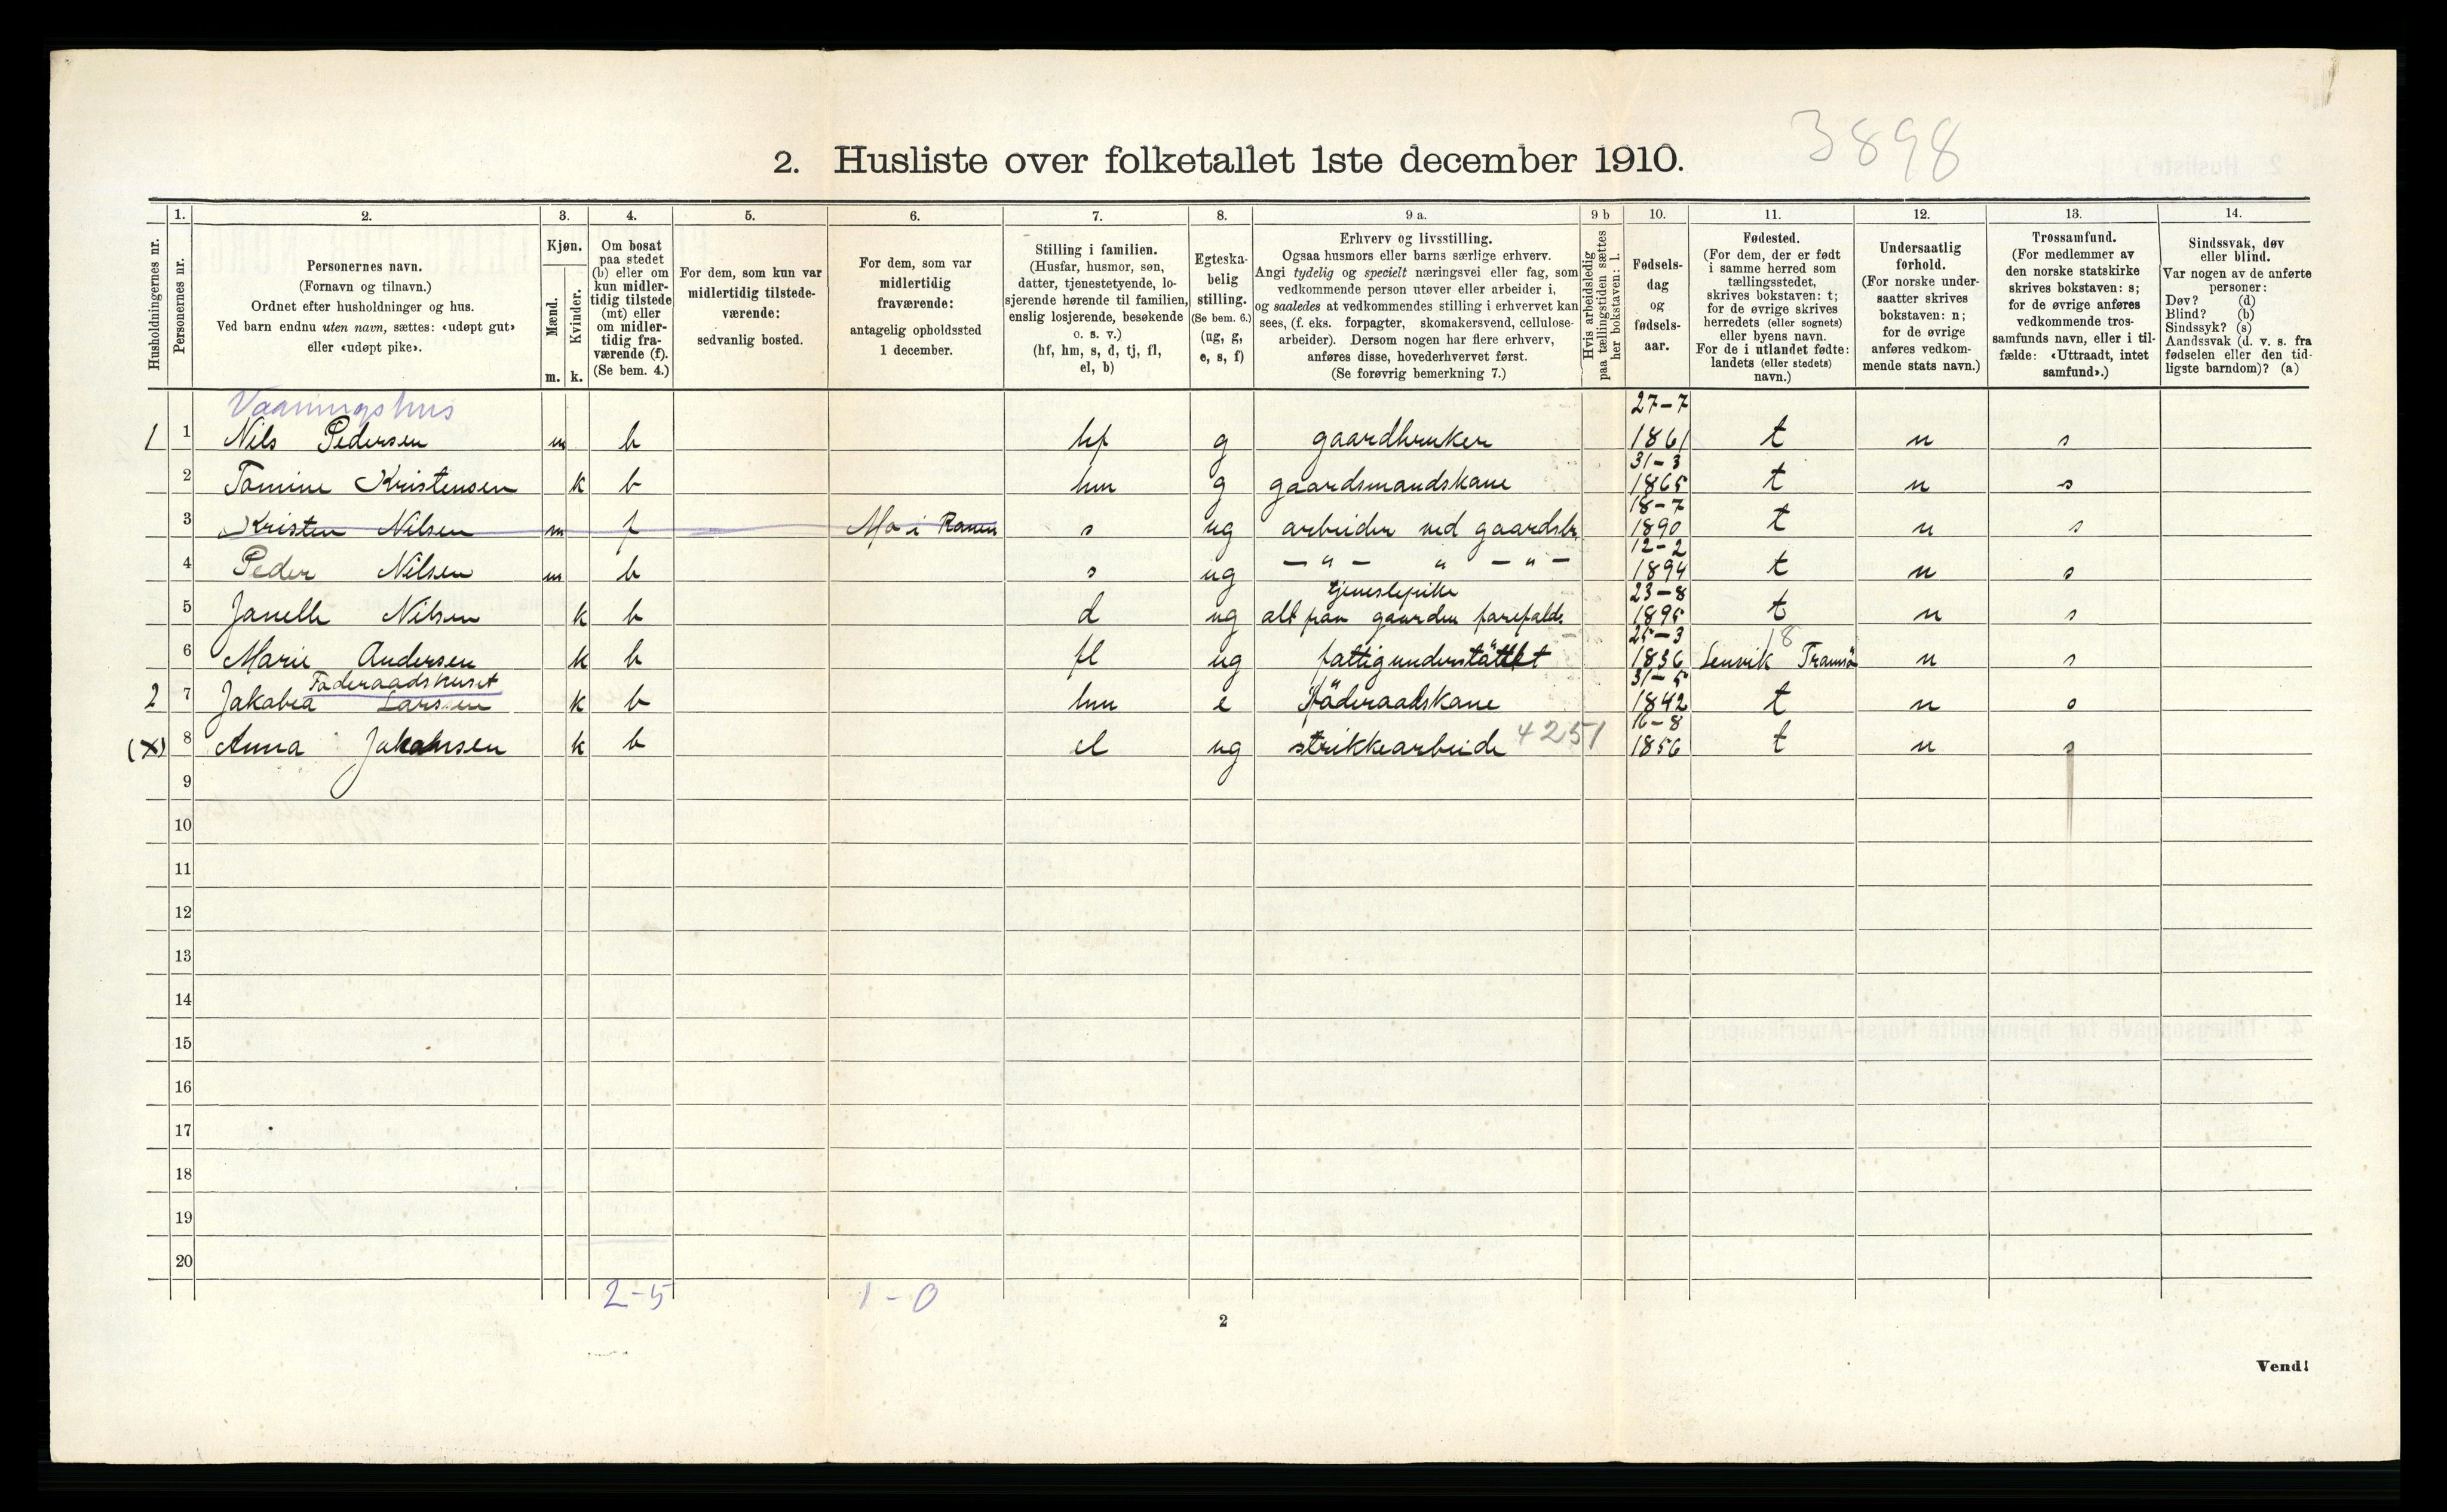 3898
2. Husliste over folketallet 1ste december 1910.
Husholdningernes nr.
1. Personernes nr.
2. Personernes navn.
(Fornavn og tilnavn.)
Ordnet efter husholdninger og hus.
Ved barn endnu uten navn, sættes: «udøpt gut»
eller «udøpt pike».
3. Kjøn.
Mænd. Kvinder.
m. k.
4. Om bosat
paa stedet
(b) eller om
kun midler-
tidig tilstede
(mt) eller
om midler-
tidig fra-
værende (f).
(Se bem. 4.)
5. For dem, som kun var
midlertidig tilstede-
værende:
sedvanlig bosted.
6. For dem, som var
midlertidig
fraværende:
antagelig opholdssted
1 december.
7. Stilling i familien.
(Husfar, husmor, søn,
datter, tjenestetyende, lo-
sjerende hørende til familien,
enslig losjerende, besøkende
o. s. v.)
(hf, hm, s, d, tj, fl,
el, b)
8. Egteska-
belig
stilling.
(Se bem. 6.)
(ug, g,
e, s, f)
9 a. Erhverv og livsstilling.
Ogsaa husmors eller barns særlige erhverv.
Angi tydelig og specielt næringsvei eller fag, som
vedkommende person utøver eller arbeider i,
og saaledes at vedkommendes stilling i erhvervet kan
sees, (f. eks. forpagter, skomakersvend, cellulose-
arbeider). Dersom nogen har flere erhverv,
anføres disse, hovederhvervet først.
(Se forøvrig bemerkning 7.)
9 b Hvis arbeidsledig
paa tællingstiden sættes
her bokstaven: l.
10. Fødsels-
dag
og
fødsels-
aar.
11. Fødested.
(For dem, der er født
i samme herred som
tællingsstedet,
skrives bokstaven: t;
for de øvrige skrives
herredets (eller sognets)
eller byens navn.
For de i utlandet fødte:
landets (eller stedets)
navn.)
12. Undersaatlig
forhold.
(For norske under-
saatter skrives
bokstaven: n;
for de øvrige
anføres vedkom-
mende stats navn.)
13. Trossamfund.
(For medlemmer av
den norske statskirke
skrives bokstaven: s;
for de øvrige anføres
vedkommende tros-
samfunds navn, eller i til-
fælde: «Uttraadt, intet
samfund».)
14. Sindssvak, døv
eller blind.
Var nogen av de anførte
personer:
Døv? (d)
Blind? (b)
Sindssyk? (s)
Aandssvak (d. v. s. fra
fødselen eller den tid-
ligste barndom)? (a)
Vaaningshus
1 1 Nils Pedersen m b hf g gaardbruker 27-7 1861 t n s
2 Tomine Kristensen k b hm g gaardsmandskone 31-3 1865 t n s
3 Kristen Nilsen m f Mo i Ranen s ug arbeider ved gaardsbr. 18-7 1890 t n s
4 Peder Nilsen m b s ug — " — " — " — 12-2 1894 t n s
5 Janelle Nilsen k b d ug tjenestepike alt paa gaarden 23-8 1895 t n s
18
6 Marie Andersen k b fl ug fattigunderstöttet 25-3 1836 Lenvik Tromsö n s
Föderaadshuset
2 7 Jakobea Larsen k b hm e föderaadskone 31-5 1842 t n s
(x) 8 Anna Jakobsen k b el ug strikkearbeide 4251 16-8 1856 t n s
9
10
11
12
13
14
15
16
17
18
19
20
2-5 1-0
2
Vend!